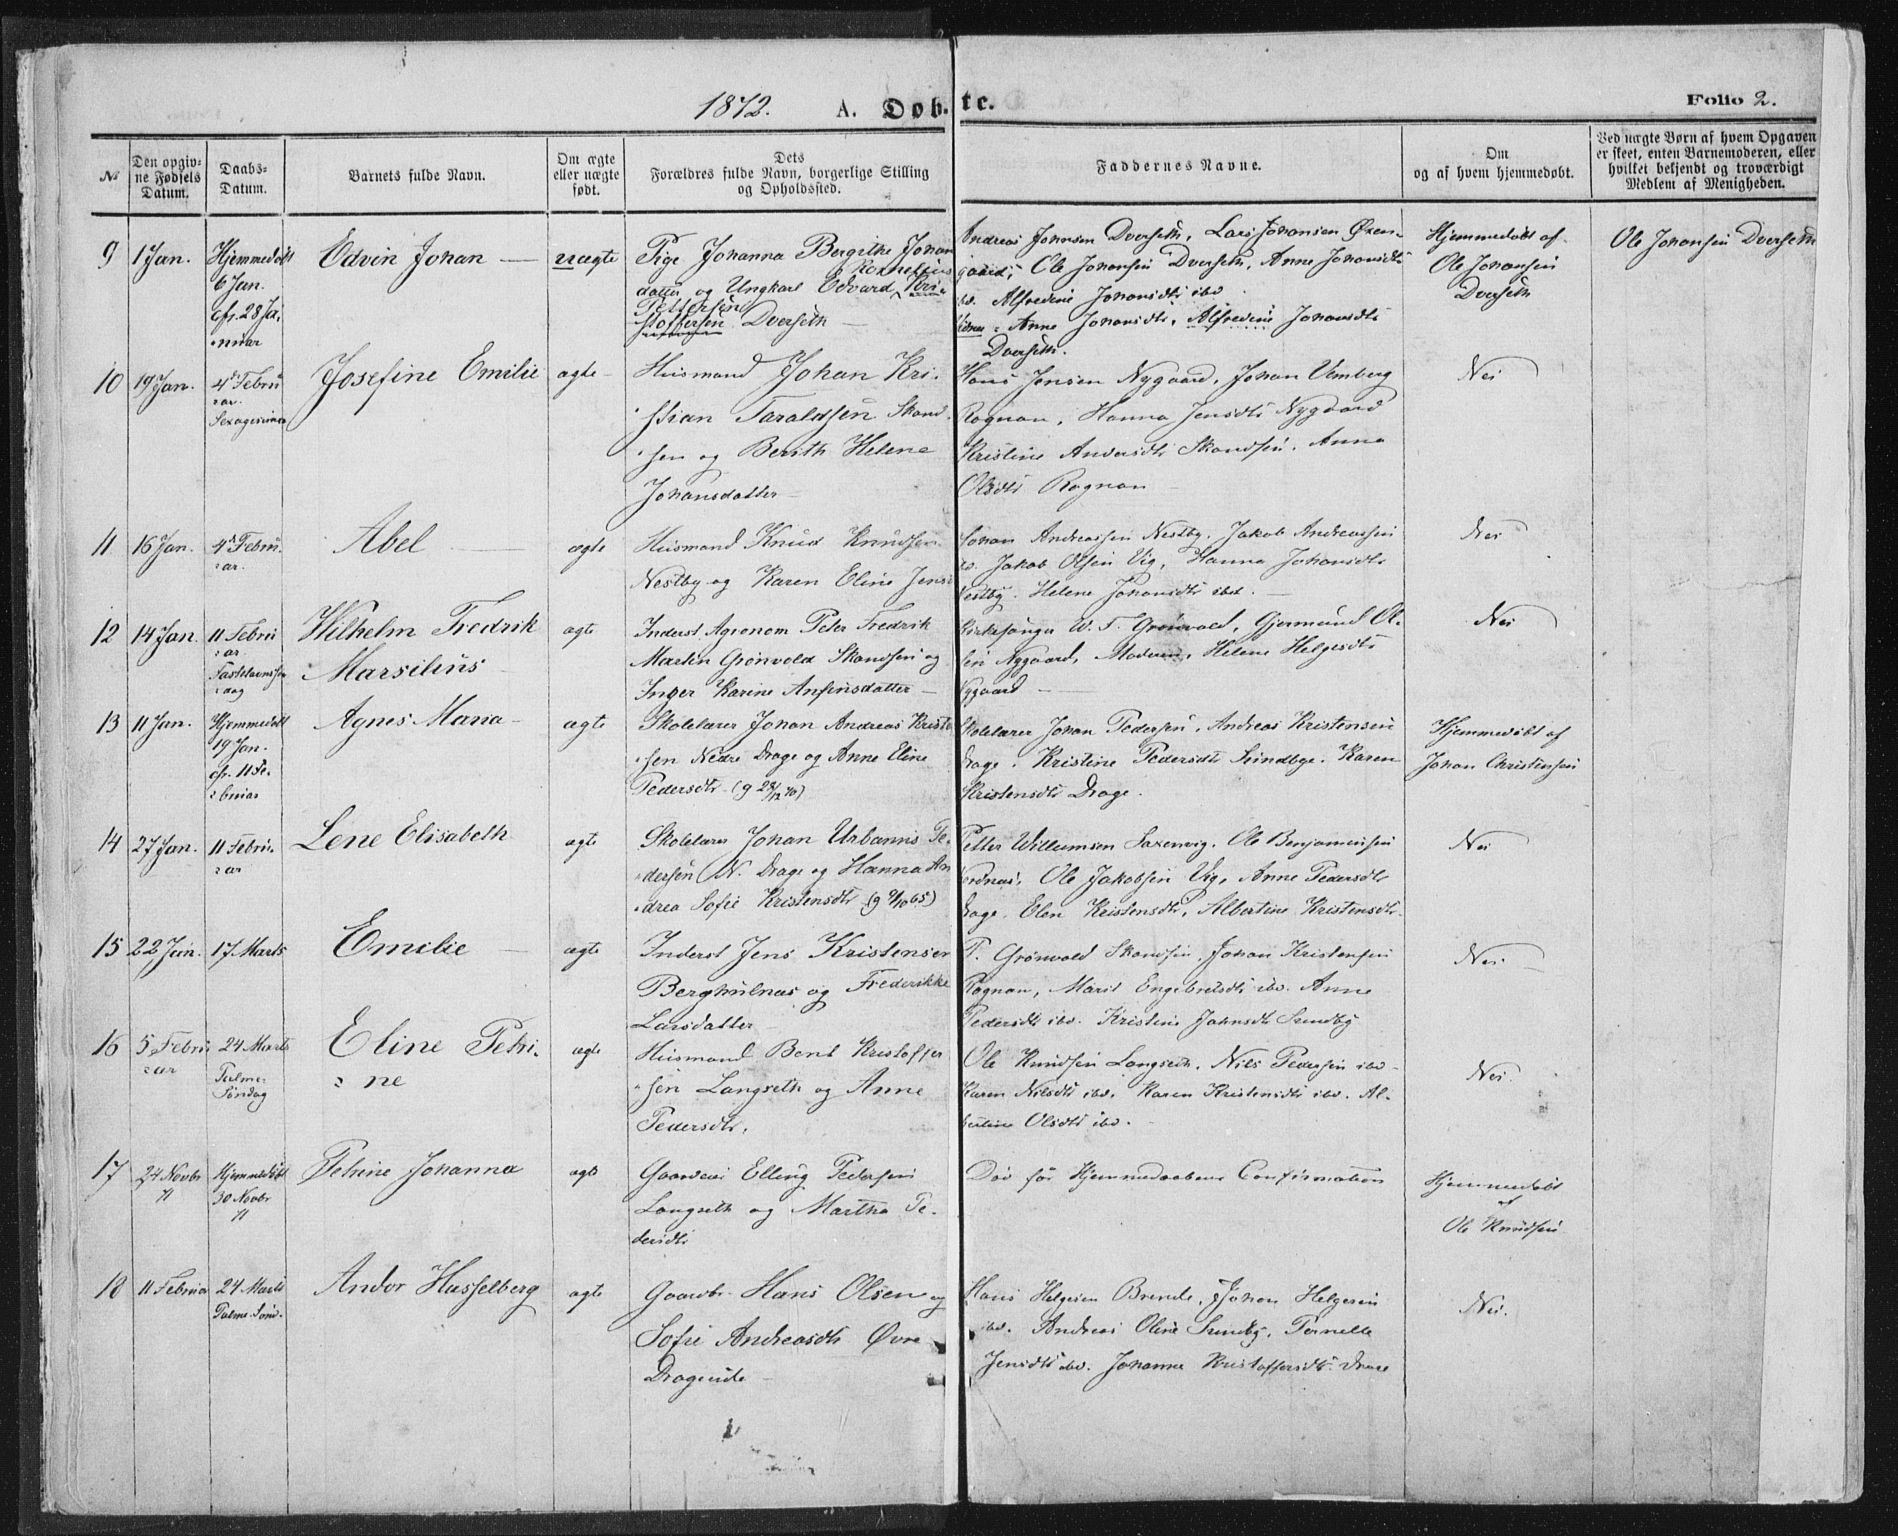 1872. A. Døbte. Folio 2.
№
Den opgivne Fødsels Datum.
Daabs-Datum.
Barnets fulde Navn.
Om ægte eller uægte født.
Dets Forældres fulde Navn, borgerlige Stilling og Opholdssted.
Faddernes Navne.
Om og af hvem hjemmedøbt.
Ved uægte Børn af hvem Opgaven er skeet, enten Barnemoderen, eller hvilket bekjendt og troværdigt Medlem af Menigheden.
9
1 Jan.
Hjemmedøbt
6 Jan.
cfr. 28 Ja-
nuar
Edvin Johan
uægte
Pige Johanna Bergitke Johan
Kornelius
datter og Ungkarl Edvard Kri-
Pettersen
stoffersen Dverseth
Andreas Johnsen Dverseth, Lars Johansen Øxen-
gaard, Ole Johansen Dverseth, Anne Johansdtr
ibd. Alfredine Johansdtr ibd
Anne Johansdtr, Alfredine Johansdtr
Dverseth.
Hjemmedøbt af
Ole Johansen
Dverseth
Ole Johansen Dverseth
10
19 Jan.
4de Febru
ar.
Sexagesima
Josefine Emilie
ægte
Huusmand Johan Kri-
stian Taraldsen Skand-
sen og Berith Helene
Johansdatter
Hans Jensen Nygaard, Johan Vemberg
Rognan, Hanna Jensdtr Nygaard
Kristine Andersdtr Skandsen, Anna
Olsdtr Rognan
Nei
11
16 Jan.
4de Febru-
ar.
Abel
ægte
Huusmand Knud Knudsen
Nestby og Karen Eline Jens
Johan Andreassen Nestby, Jakob Andreassen
ibd. Jakob Olsen Vig, Hanna Johansdtr
Nestby. Helene Johansdtr ibd.
Nei
12
14 Jan.
11 Febru
ar
Fastelavnssøn
dag
Wilhelm Fredrik
Marselius
ægte
Inderst Agronom Peter Fredrik
Martin Grønvold Skandsen og
Inger Karine Anfinsdatter
Kirkesanger W. F. Grønvold, Gjermund Ol-
sen Nygaard, Moderen, Helene Helgesdtr
Nygaard
Nei
13
11 Jan.
Hjemmedøbt
19 Jan.
cfr. 11 Fe-
bruar
Agnes Maria
ægte
Skolelærer Johan Andreas Krist
sen Nedre Drage og Anne Eline
Pedersdtr (g 28/12 70)
Skolelærer Johan Pedersen, Andreas Kristensen
Drage. Kristine Pedersdtr Sundbye. Karen
Kristensdtr Drage.
Hjemmedøbt af
Johan Christensen
14
27 Jan.
11 Febru-
ar
Lene Elisabeth
ægte
Skolelærer Johan Urbanus Pe-
dersen N. Drage og Hanna An
drea Sofie Kristensdtr (g 9/10 65)
Petter Willumsen Saxenvig. Ole Benjaminsen
Nordnæs, Ole Jakobsen Vig, Anne Pedersdtr
Drage. Elen Kristensdtr, Albertine Kristensdtr.
Nei
15
22 Jan.
17 Marts
Emilie
ægte
Inderst Jens Kristensen
Berghulnæs og Frederikke
Larsdatter
P. Grønvold Skandsen, Johan Kristensen
Rognan, Marit Engebretsdtr ibd. Anne
Pedersdtr ibd. Kristine Jahnsdtr Sundby
Nei
16
5 Febru
ar
24 Marts
Palme-
Søndag
Eline Petri-
ne
ægte
Huusmand Bent Kristoffer
sen Langseth og Anne
Pedersdtr.
Ole Knudsen Langseth, Nils Pedersen ibd
Karen Nilsdtr ibd. Karen Kristensdtr ibd. Al-
bertine Olsdtr ibd.
Nei.
17
24 Novbr
71
Hjemmedøbt
30 Novbr
71
Petrine Johanna
ægte
Gaardeier Elling Pedersen
Langseth og Martha Pe-
dersdtr
Død før Hjemmedaabens Confirmation
Hjemmedøbt
af
Ole Knudsen
18
11 Februar
24 Marts
Palme Sønd.
Andor Hasselberg
ægte
Gaardbr. Hans Olsen og
Sofie Andreasdtr Øvre
Drageide
Hans Helgesen Brende, Johan Helgesen
ibd. Andreas Oline Sundby, Pernelle
Jensdtr ibd. Johanna Kristoffersdtr. Drage
Nei.